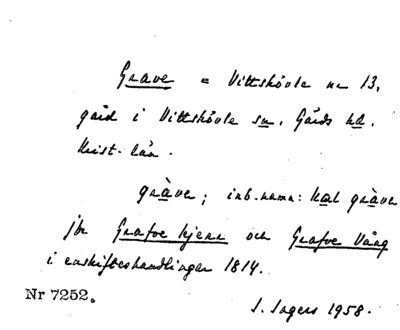 Grave = Vittskövle nr 13,
gård i Vittskövle sn, Gärds hd.
Krist. län.
gràve; inb.namn: kal gràve
jfr Grafve kjenn och Grafve Vång
i enskifteshandlingar 1814.
Nr 7252.
S. Ingers 1958.